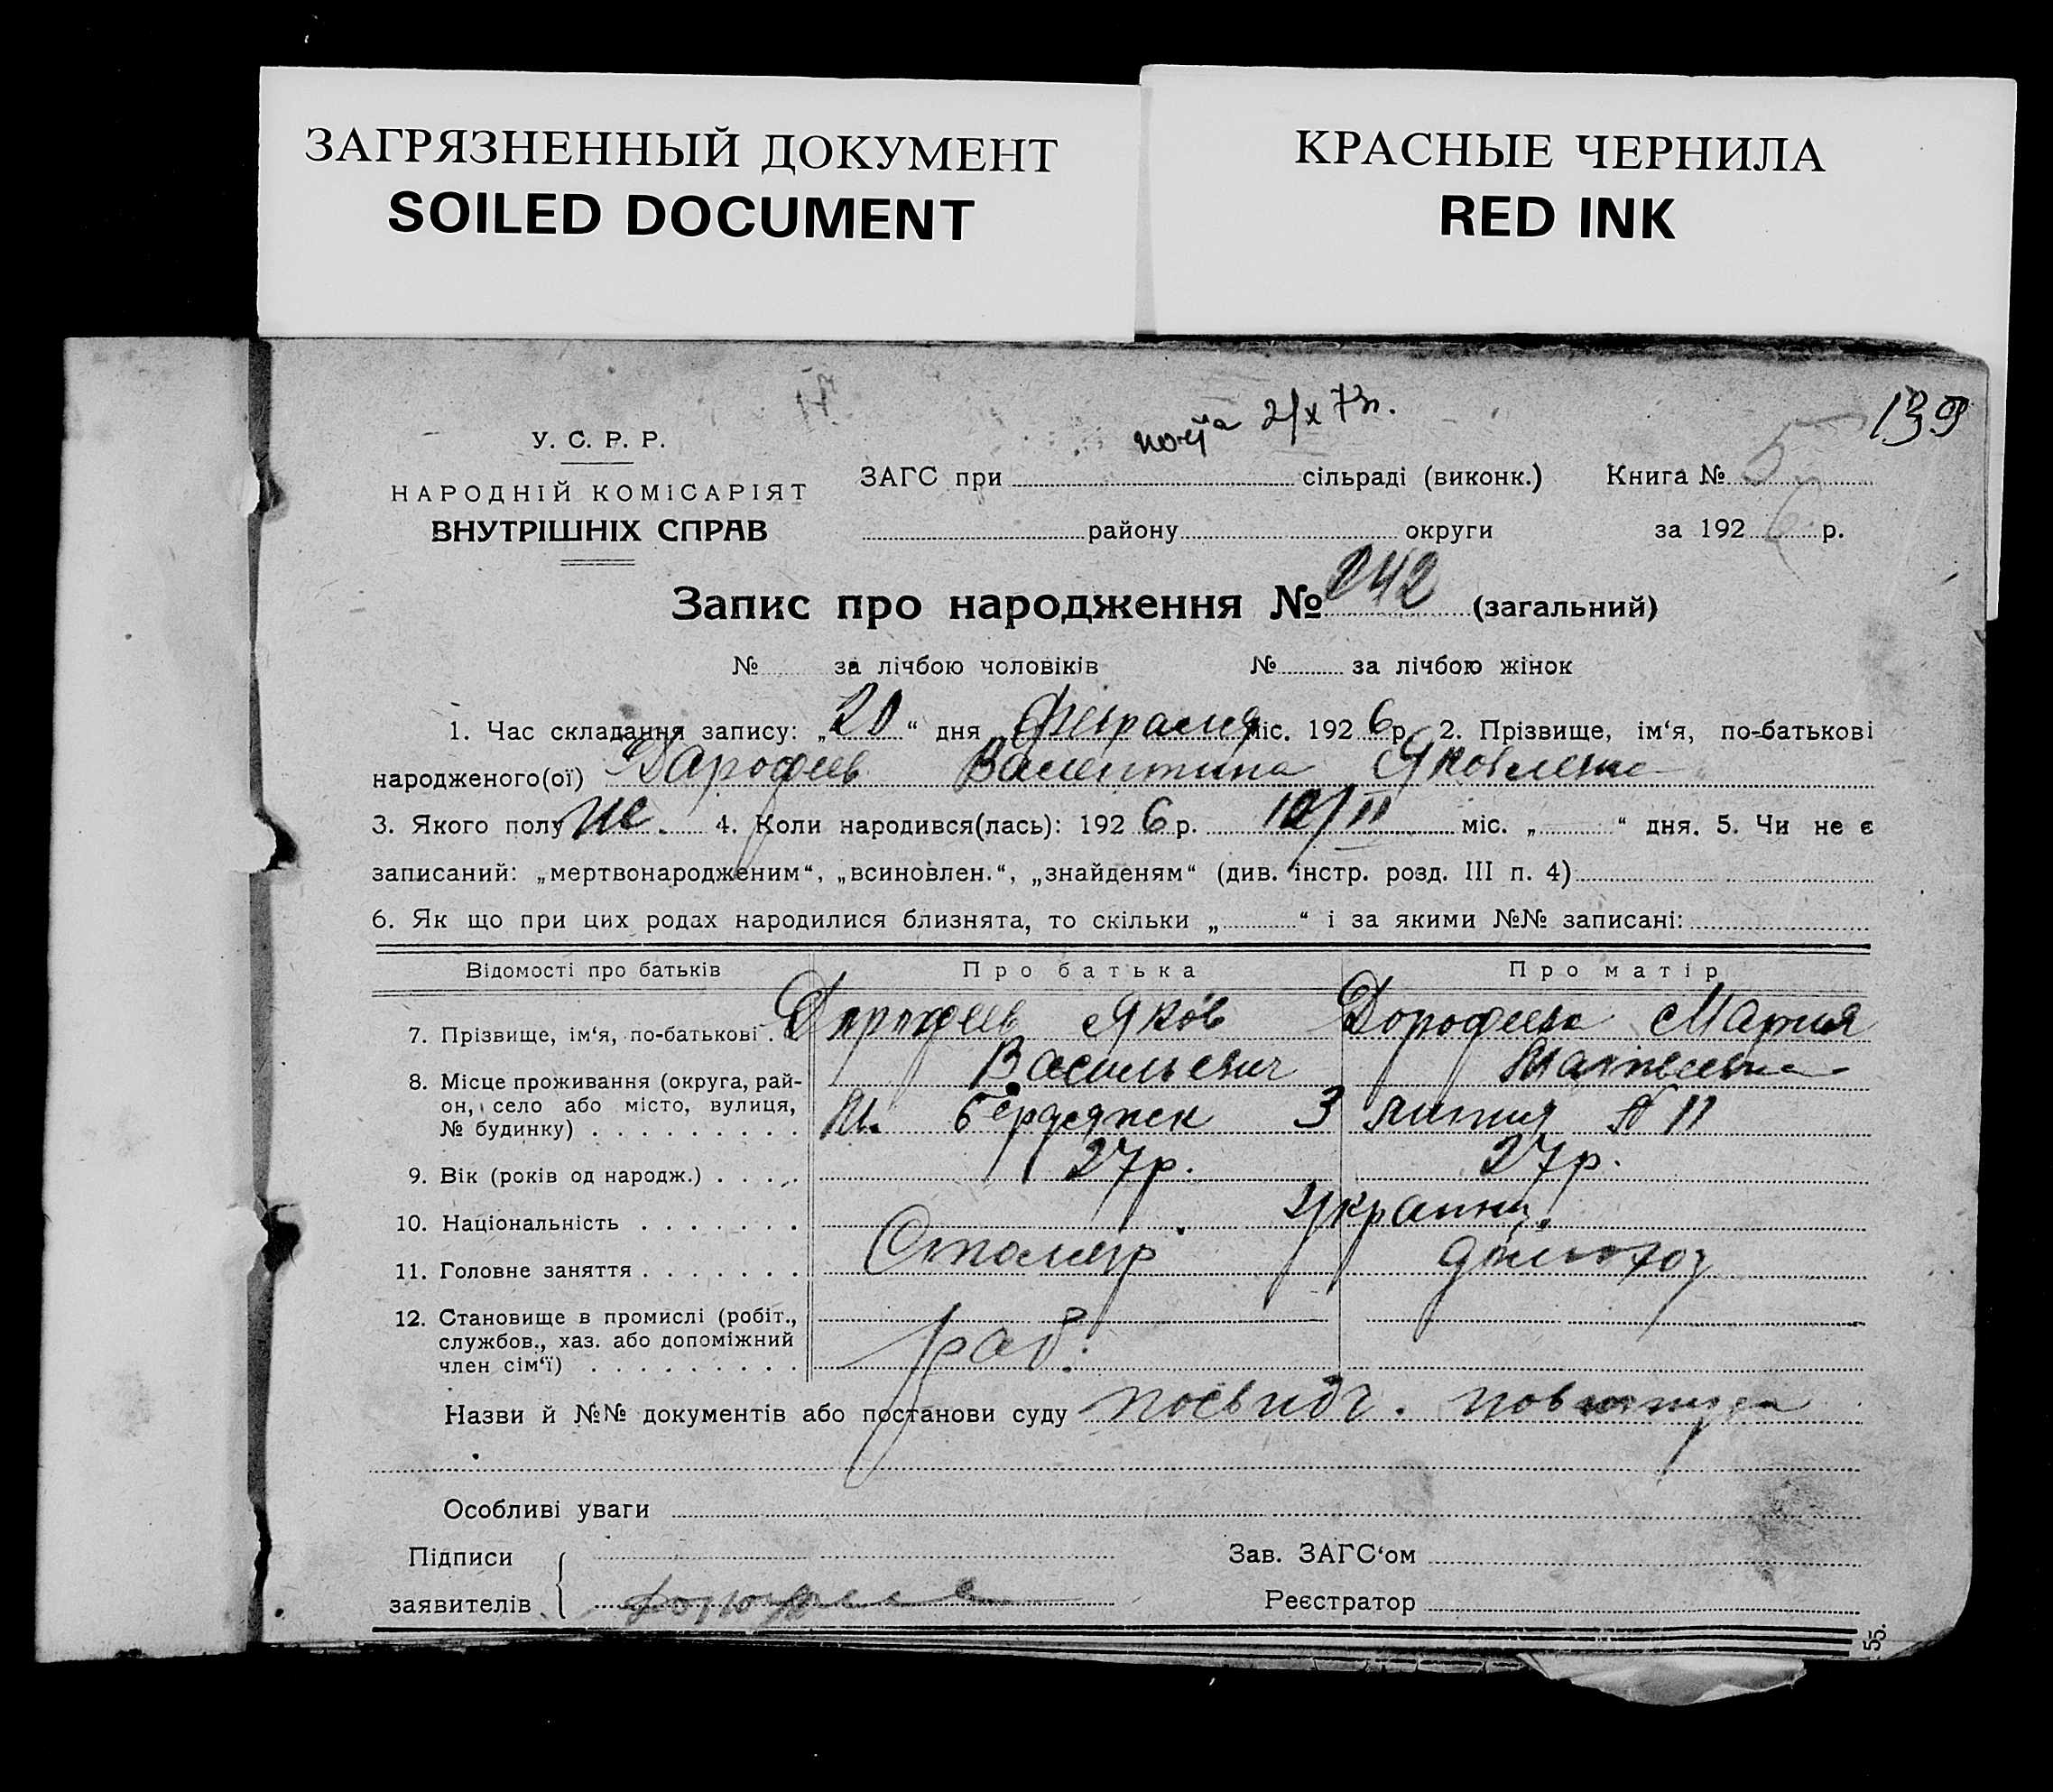 ЗАГРЯЗНЕННЫЙ ДОКУМЕНТ
SOILED DOCUMENT
КРАСНЫЕ ЧЕРНИЛА
RED INK
139
2/X 73г.
У. С. Р. Р.
НАРОДНІЙ КОМІСАРІЯТ
ВНУТРІШНІХ СПРАВ
ЗАГС при сільраді (виконк.) Книга № 5
району округи за 1926 р.
Запис про народження № 242 (загальний)
№ за лічбою чоловіків № за лічбою жінок
1. Час складання запису: „20“ дня Февраля міс. 1926 р. 2. Прізвище, ім‘я, по-батькові
народженого(ої) Дарофеев Валентина Яковлевна
3. Якого полу же. 4. Коли народився(лась): 1926 р. 12/II міс. „ “ дня. 5. Чи не є
записаний: „мертвонародженим“, „всиновлен.“, „знайденям“ (див. інстр. розд. III п. 4)
6. Як що при цих родах народилися близнята, то скільки „ “ і за якими №№ записані:
Відомості про батьків Про батька Про матір
7. Прізвище, ім‘я, по-батькові . Дорофеев Яков Дорофеева Мария
Васильевич Матвеевна
8. Місце проживання (округа, рай-
он, село або місто, вулиця,
№ будинку) . . . . . . . . . м. Бердянск 3 линия № 11
9. Вік (років од народж.) . . . . 27р. 27р.
10. Національність . . . . . . . Украинц.
11. Головне заняття . . . . . . . Столяр домохоз
12. Становище в промислі (робіт.,
службов., хаз. або допоміжний
член сім‘ї) . . . . . . . . . раб.
Назви й №№ документів або постанови суду посвидч.
Особливі уваги
Підписи
заявителів
Зав. ЗАГС‘ом
Реєстратор
55.